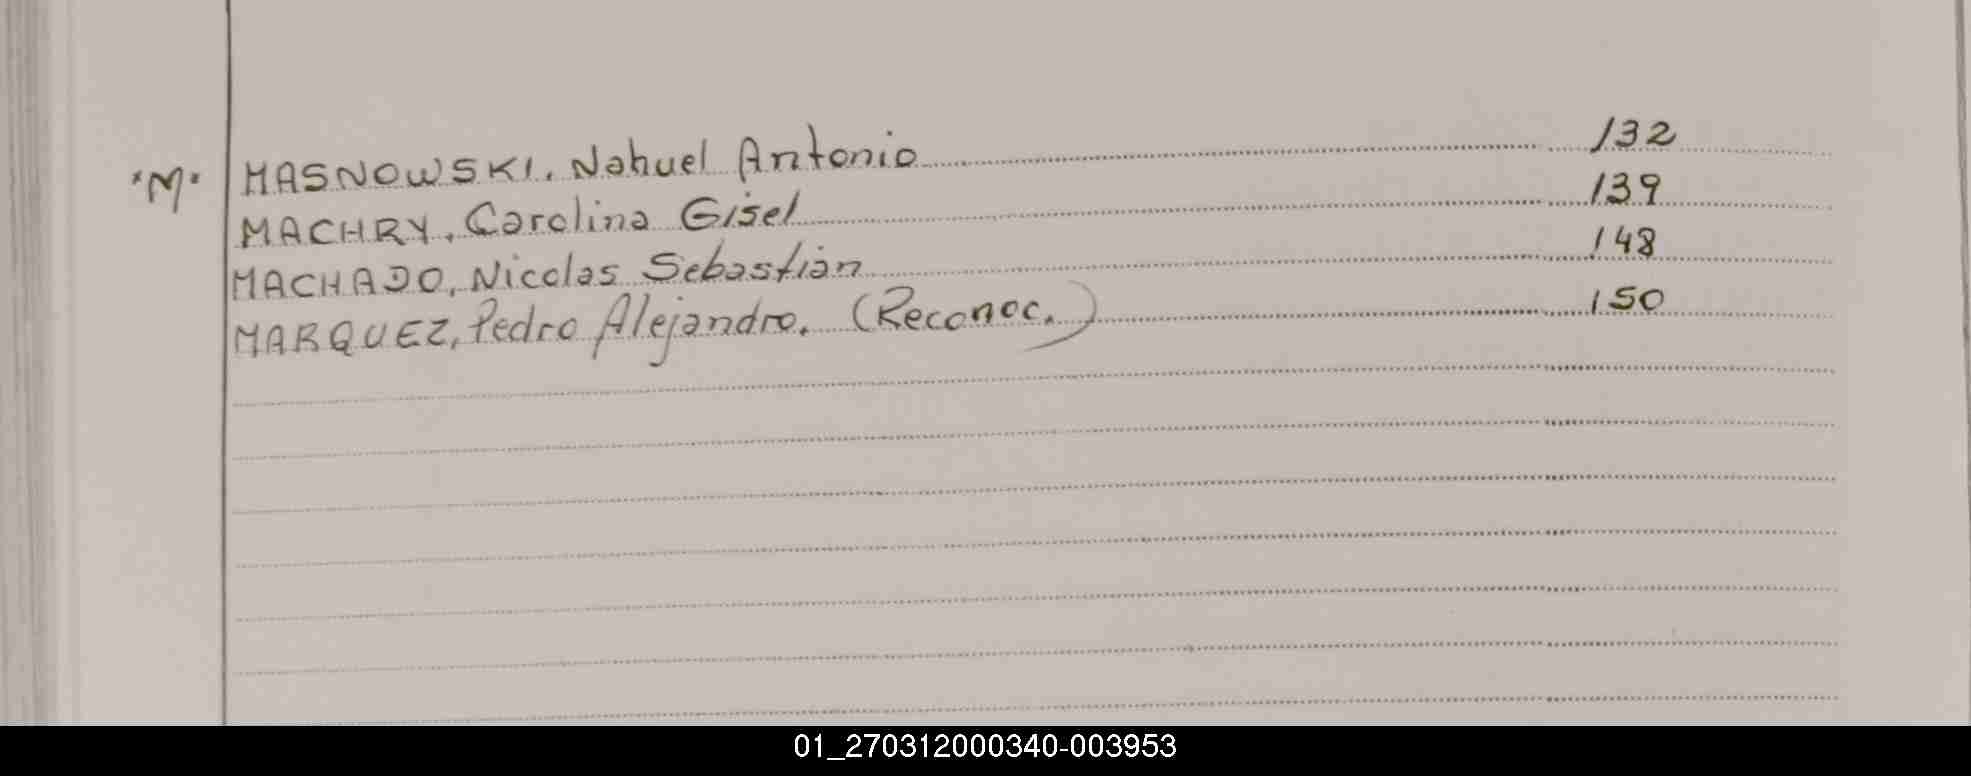 "M" MASNOWSKI, Nahuel Antonio 132
MACHRY, Carolina Gisel 139
MACHADO, Nicolas Sebastián 148
MARQUEZ, Pedro Alejandro. (Reconoc.) 150
01_270312000340-003953